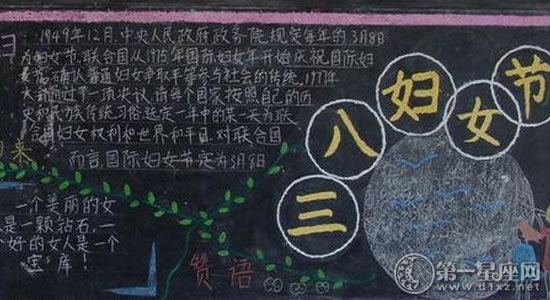 1949年12月,中央人民政府政务院规定每年的3月8日
为妇女节.联合国从1975年国际妇女年开始庆祝国际妇
女节,确认普通妇女争取平等参与社会的传统.1977年
大会通过了一项决议.请每个国家按照自己的历
史和民族传统习俗,选定一年中的某一天为联
合国妇女权利和世界和平日.对联合国
而言,国际妇女节定为3月8日
来
三八妇女节
一个美丽的女
人是一颗钻石,一
个好的女人是一个
宝库!
赞语
第一星座网
www.d1xz.net